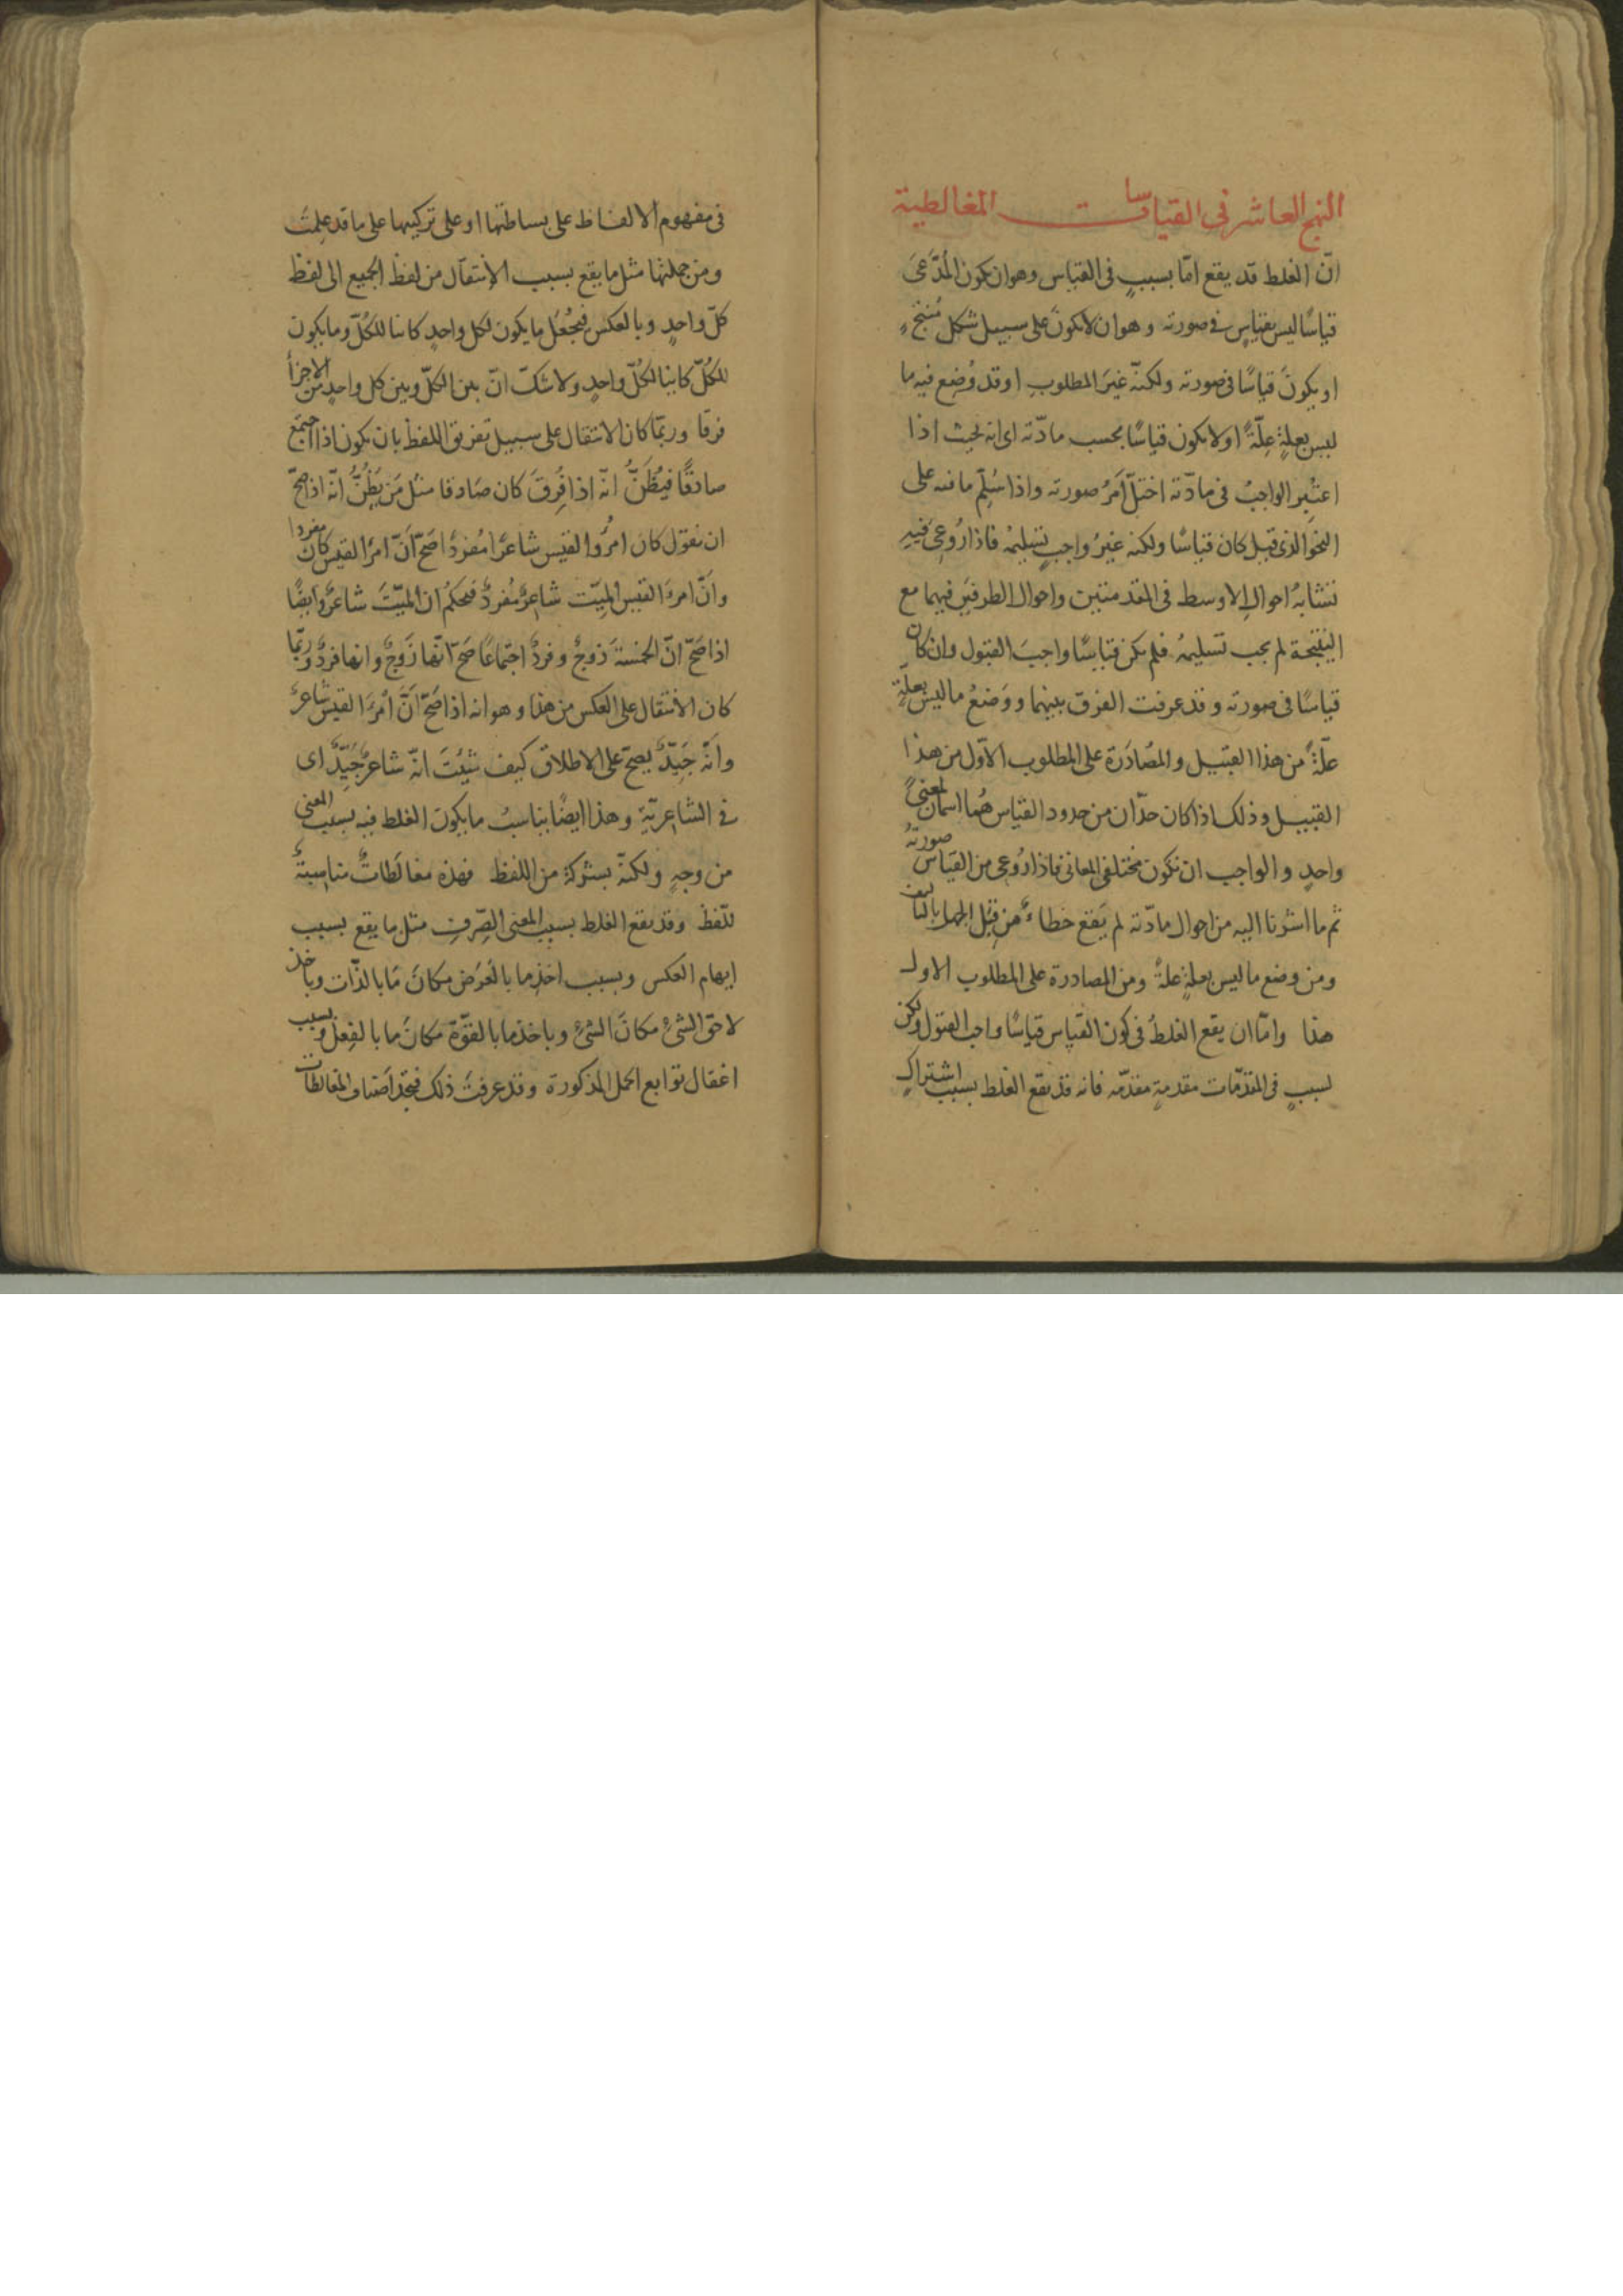 النهج العاشر في القياسات المغالطية
انّ الغلط قد يقع امّا بسببٍ في القياس وهو ان يكون المُدّعَى
قياسًا ليس بقياسٍ في صورته وهو ان لا يكونَ على سبيل شكل مُنتجٍ
او يكونَ قياسًا في صورته ولكنّه غيرَ المطلوبِ او قد وُضِع فيه ما
ليس بعلةٍ عِلّةً او لا يكون قياسًا بحسب مادّته اى انه بحيث اذا
اعتُبِر الواجبُ في مادّته اختلّ اَمرُ صورته واذا سُلِّم ما فيه على
النحو الذى قيل كان قياسًا ولكنه غيرُ واجبٍ تسليمُه فاذا رُوعِىَ فيهِ
تشابهُ احوالِ الاوسط في المقدمتين واحوال الطرفَينِ فيهما مع
النتيجة لم يجب تسليمُه فلم يكن قياسًا واجبَ القبول وان كان
قياسًا في صورته وقد عرفت الفرق بينهما ووَضعُ ما ليس بعلّةٍ
علّةً من هذا القبيل والمُصادَرة على المطلوب الاوّل من هذا
القبيل وذلك اذا كان حدّان من حدود القياس هُما اسمان لمعنىً
واحدٍ والواجب ان تكون مختلفي المعاني فاذا رُوعى من القياس صورتهُ
ثم ما اشرنا اليه من احوال مادّته لم يَقع خطاءٌ من قِبَل الجهل بالتأليف
ومن وضع ما ليس بعلةٍ علةً ومن المصادرة على المطلوب الاول
هذا وامّا ان يقع الغلطُ في كون القياس قياسًا واجبَ القبول ولكن
لسببٍ في المقدّمات مقدمةٍ مقدّمه فانه قد يقع الغلط بسبب اشتراكٍ
في مفهوم الالفاظ على بساطتها او على تركيبها على ما قد علِمتَ
ومن جملتها مثل ما يقع بسبب الانتقال من لفظ الجميع الى لفظ
كلّ واحدٍ وبالعكس فيُجعَلُ ما يكون لكل واحدٍ كائنا للكُلّ وما يكون
للكُلّ كائنا لكُلّ واحدٍ ولا شكّ انّ بين الكلّ وبين كل واحدٍ من الاجزأ
فرقا وربّما كان الانتقال على سبيل تفريق اللفظ بان يكون اذا اجتمع
صادقًا فيُظَنُّ انّه اذا فُرِقَ كان صَادقا مثل مَن يَظُنُّ انّه اذا صحّ
ان نقول كان امرُؤا القيس شاعرًا مُفردًا صَحّ اَنّ امرَأ القيس كان مفردا
وانّ امرءَ القيس الميّت شاعِرٌ مُفردٌ فيحكمُ ان الميّتَ شاعرٌ وايضًا
اذا صَحّ انّ الخمسةَ زوجٌ وفردٌ اجتماعًا صَحّ انّها زَوجٌ وانها فردٌ وربّما
كان الانتقال على العكس من هذا وهو انه اذا صَحّ اَنَّ اُمرَءَ القيس شاعرٌ
وانّه جَيِّدٌ يصحّ على الاطلاق كيف شِئتَ انّه شاعرٌ جَيِّدٌ اى
في الشاعريّةِ وهذا ايضًا يناسبُ ما يكون الغلط فيه بسبب المعنى
من وجهٍ ولكنّه بشركةٍ من اللفظ فهذه مغالَطاتٌ مناسِبةٌ
للّفظ وقد يقع الغلط بسبب المعنى الصِّرفِ مثل ما يقع بسبب
ايهام العكس وبسبب اخذِ ما بالعَرَض مكانَ مَا بالذّات وباخذ
لاحق الشئ مكانَ الشئ وباخذ ما بالقوّة مكانَ ما بالفِعل وبسبب
اغفال توابع الحمل المذكورة وقد عرفتَ ذلك فتجد اَصناف المغالطات